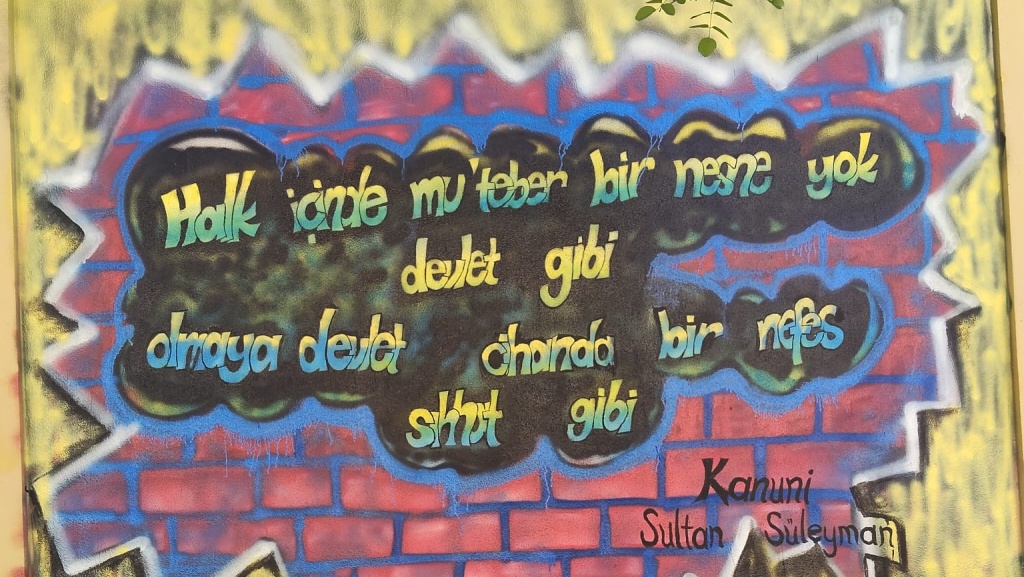 Halk içinde mu'teber bir nesne yok
devlet gibi
olmaya devlet cihanda bir nefes
sıhhat gibi
Kanuni
Sultan Süleyman